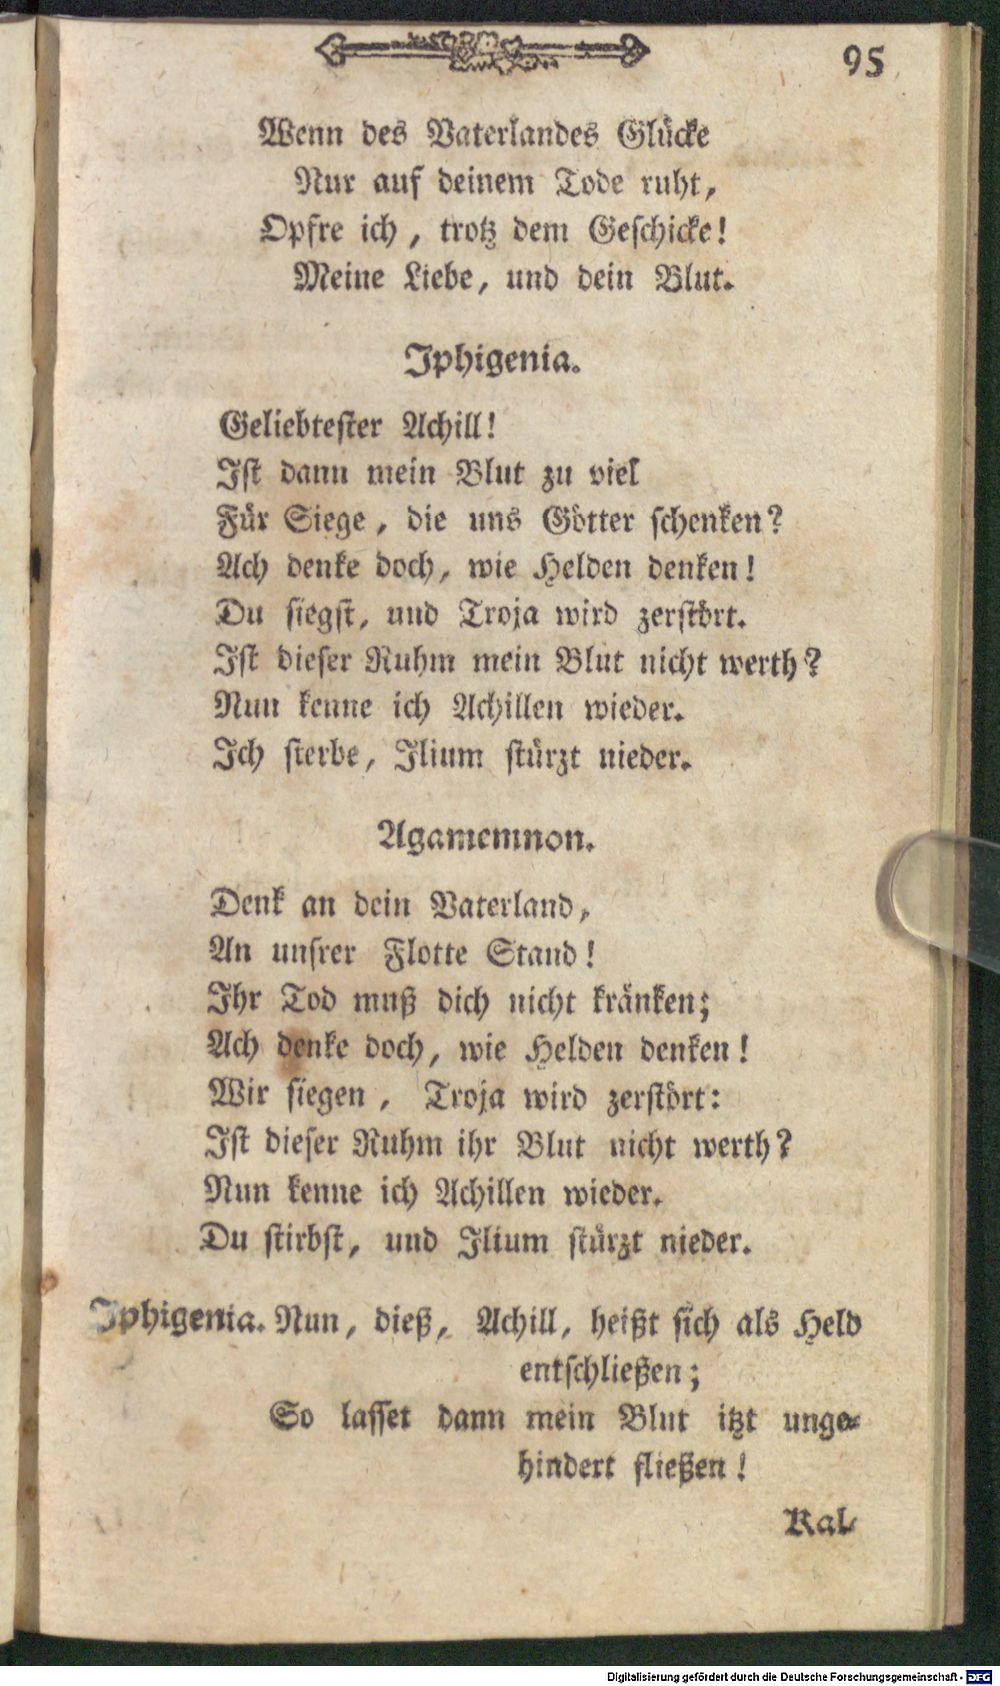 95
Wenn des Vaterlandes Glücke
Nur auf deinem Tode ruht,
Opfre ich, trotz dem Geschicke!
Meine Liebe, und dein Blut.
Iphigenia.
Geliebtester Achill!
Ist dann mein Blut zu viel
Für Siege, die uns Götter schenken?
Ach denke doch, wie Helden denken!
Du siegst, und Troja wird zerstört.
Ist dieser Ruhm mein Blut nicht werth?
Nun kenne ich Achillen wieder.
Ich sterbe, Ilium stürzt nieder.
Agamemnon.
Denk an dein Vaterland,
An unsrer Flotte Stand!
Ihr Tod muß dich nicht kränken;
Ach denke doch, wie Helden denken!
Wir siegen, Troja wird zerstört:
Ist dieser Ruhm ihr Blut nicht werth?
Nun kenne ich Achillen wieder.
Du stirbst, und Ilium stürzt nieder.
Iphigenia. Nun, dieß, Achill, heißt sich als Held
entschließen;
So lasset dann mein Blut itzt unge-
hindert fließen!
Kal-
Digitalisierung gefördert durch die Deutsche Forschungsgemeinschaft - DFG